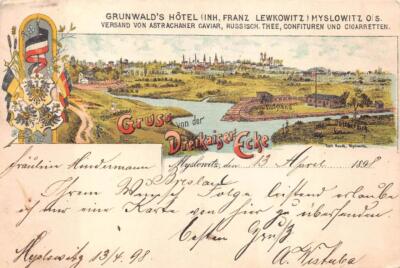 GRUNWALD'S HÔTEL (INH. FRANZ LEWKOWITZ) MYSLOWITZ O/S.
VERSAND VON ASTRACHANER CAVIAR, RUSSISCH. THEE, CONFITUREN UND CIGARRETTEN.
Gruss von der
Dreikaiser Ecke
Myslowitz, den 13 April 1898
Fräulein Hindermann
Breslau
Ihrem Wunsch Folge leistend erlaube
ich mir eine Karte von hier zu übersenden.
Besten Gruß
Myslowitz 13/4 98.